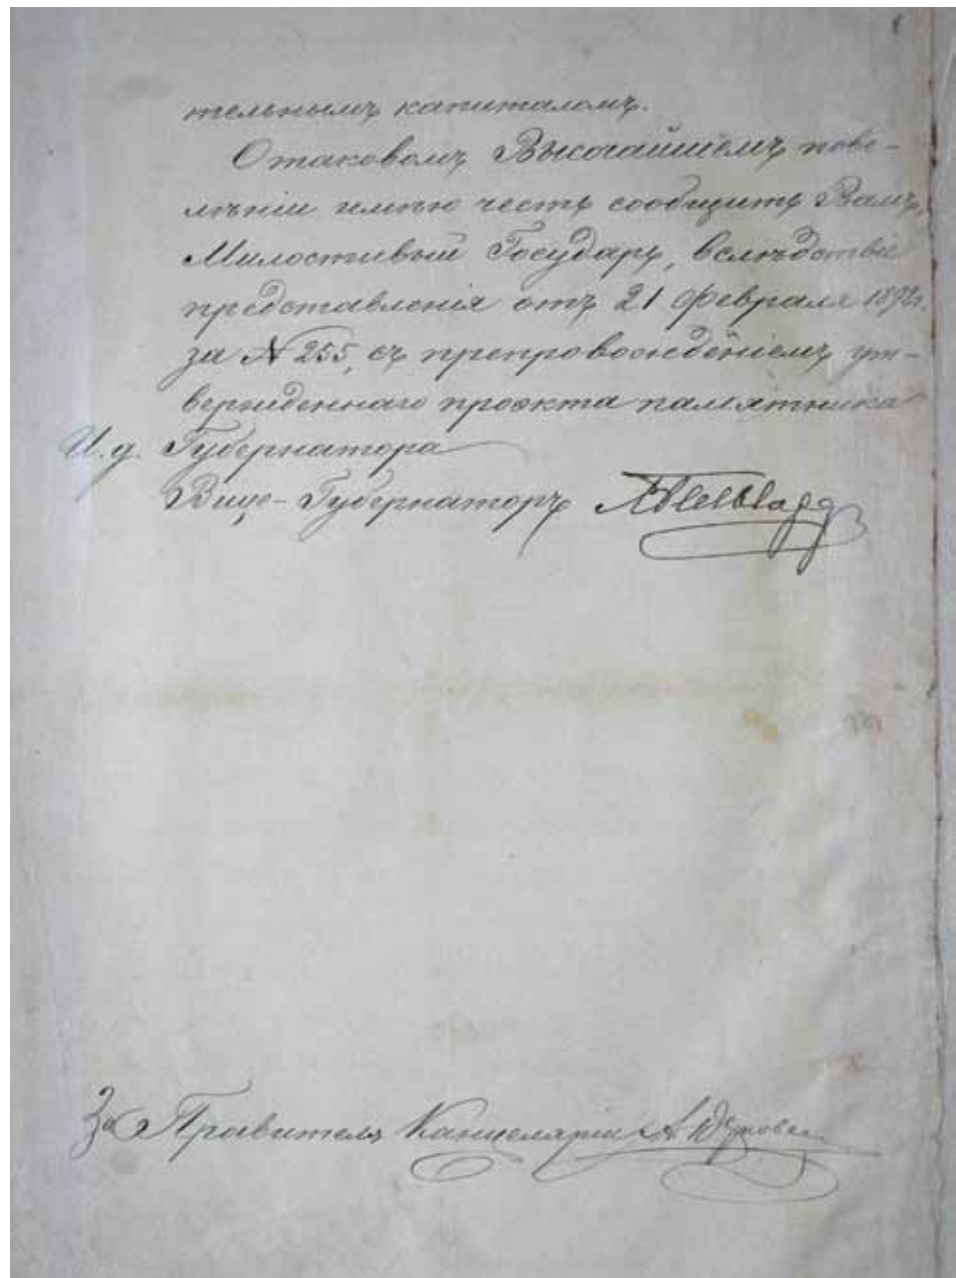 тельнымъ капиталомъ.
О таковомъ Высочайшемъ пове-
лѣніи имѣю честь сообщить Вамъ,
Милостивый Государь, вслѣдствіе
представленія отъ 21 февраля 189
за № 255, съ препровожденіемъ ут-
вержденнаго проекта памятника
И. д. Губернатора
Вице-Губернаторъ
За Правителя Канцеляріи А.